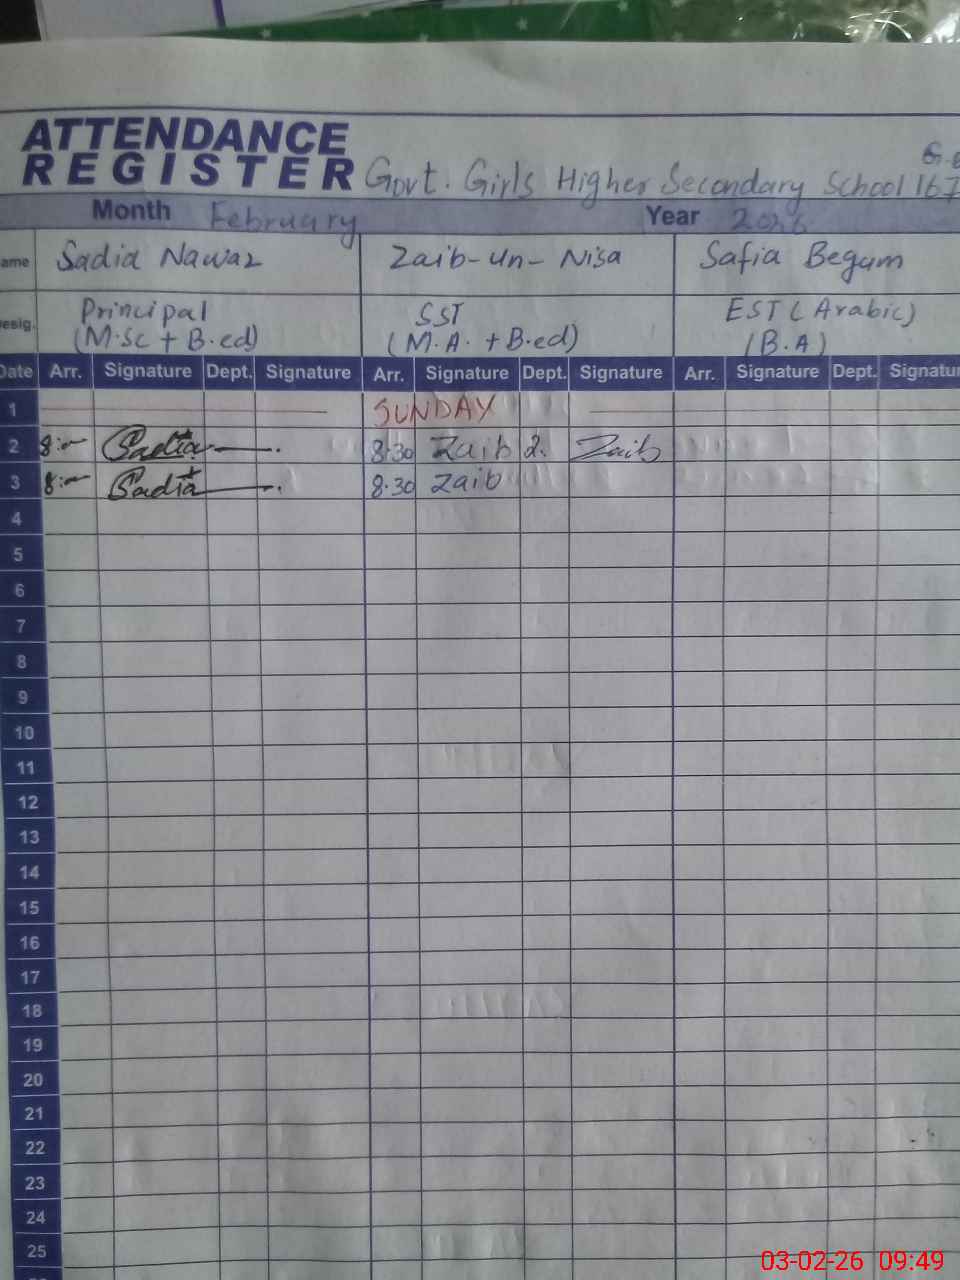 ATTENDANCE
REGISTER Govt. Girls Higher Secondary School 167
Month February Year 2026
ame Sadia Nawaz Zaib-un-Nisa Safia Begum
esig. Principal SST EST (Arabic)
(M.Sc + B.ed) (M.A. + B.ed) (B.A)
Date Arr. Signature Dept. Signature Arr. Signature Dept. Signature Arr. Signature Dept. Signatur
1 SUNDAY
2 8:- Sadia 8.30 Zaib 2. Zaib
3 8:- Sadia 8.30 Zaib
4
5
6
7
8
9
10
11
12
13
14
15
16
17
18
19
20
21
22
23
24
25
03-02-26 09:49